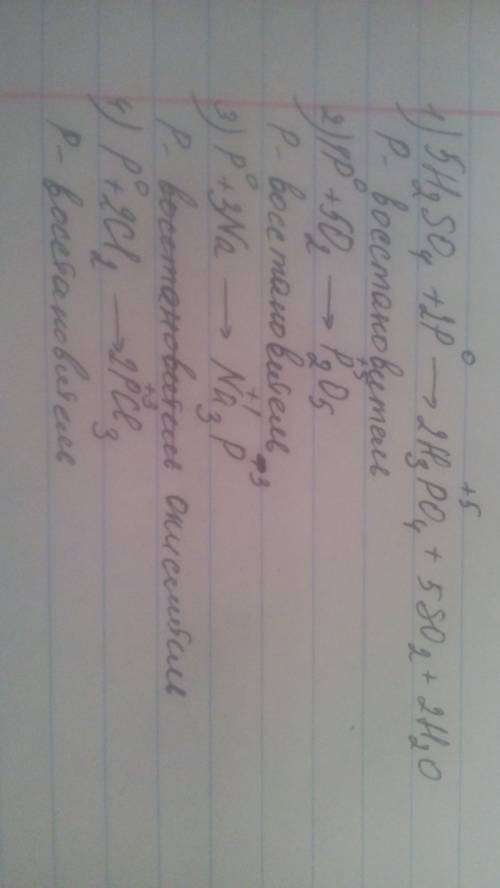 1) 5H₂SO₄ + 2P⁰ → 2H₃P⁺⁵O₄ + 5SO₂ + 2H₂O
P - восстановитель
2) 4P⁰ + 5O₂ → P₂⁺⁵O₅
P - восстановитель
3) P⁰ + 3Na → Na₃⁺¹P⁻³
P - восстановитель окислитель
4) P⁰ + 2Cl₂ → 2P⁺³Cl₃
P - восстановитель